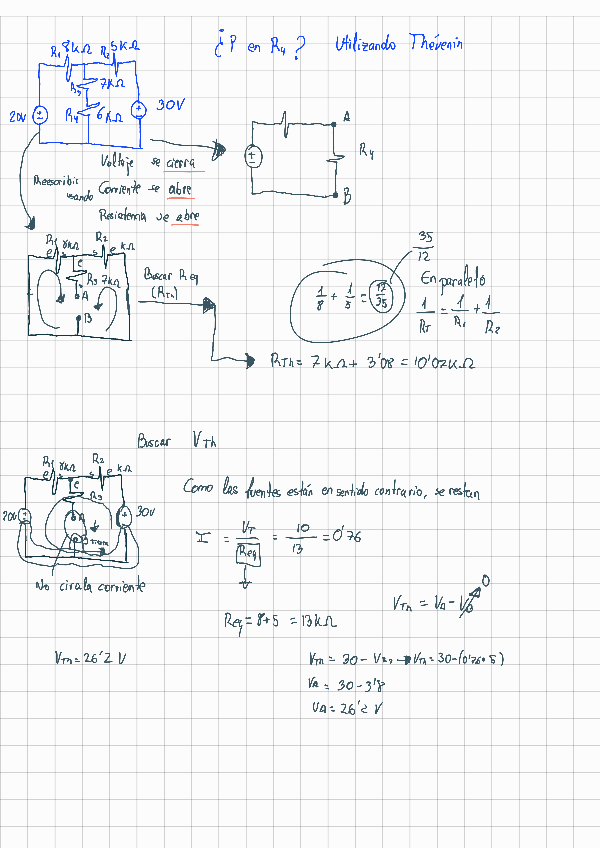 ¿P en R4? Utilizando Thévenin
R1 8kΩ R2 5kΩ
R3 7kΩ
20V R4 6kΩ 30V
A
R4
B
Voltaje se cierra
Reescribir usando Corriente se abre
Resistencia se abre
R1 8kΩ R2 kΩ
e e
c
R3 7kΩ
A
B
Buscar Req
(RTh)
35/12
1/8 + 1/5 = 12/35
En paralelo
1/RT = 1/R1 + 1/R2
RTh = 7kΩ + 3'08 = 10'02kΩ
Buscar VTh
R1 8kΩ R2 kΩ
e e
c
R3
20V A 30V
B
No cirula corriente
Como las fuentes están en sentido contrario, se restan
I = VT/Req = 10/13 = 0'76
Req = 8+5 = 13kΩ
VTh = VA - VB 0
VTh = 26'2 V
VTh = 30 - VR2 → VTh = 30-(0'76·5)
VA = 30 - 3'8
VA = 26'2 V